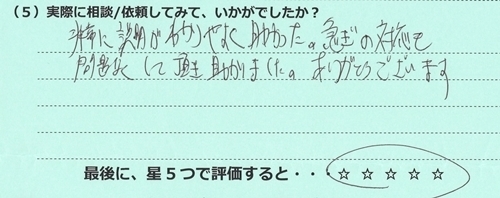 (５) 実際に相談/依頼してみて、いかがでしたか？
非常に説明がわかりやすく助かった。急ぎの対応も
問題なくして頂き助かりました。ありがとうございます
最後に、星５つで評価すると・・・☆ ☆ ☆ ☆ ☆